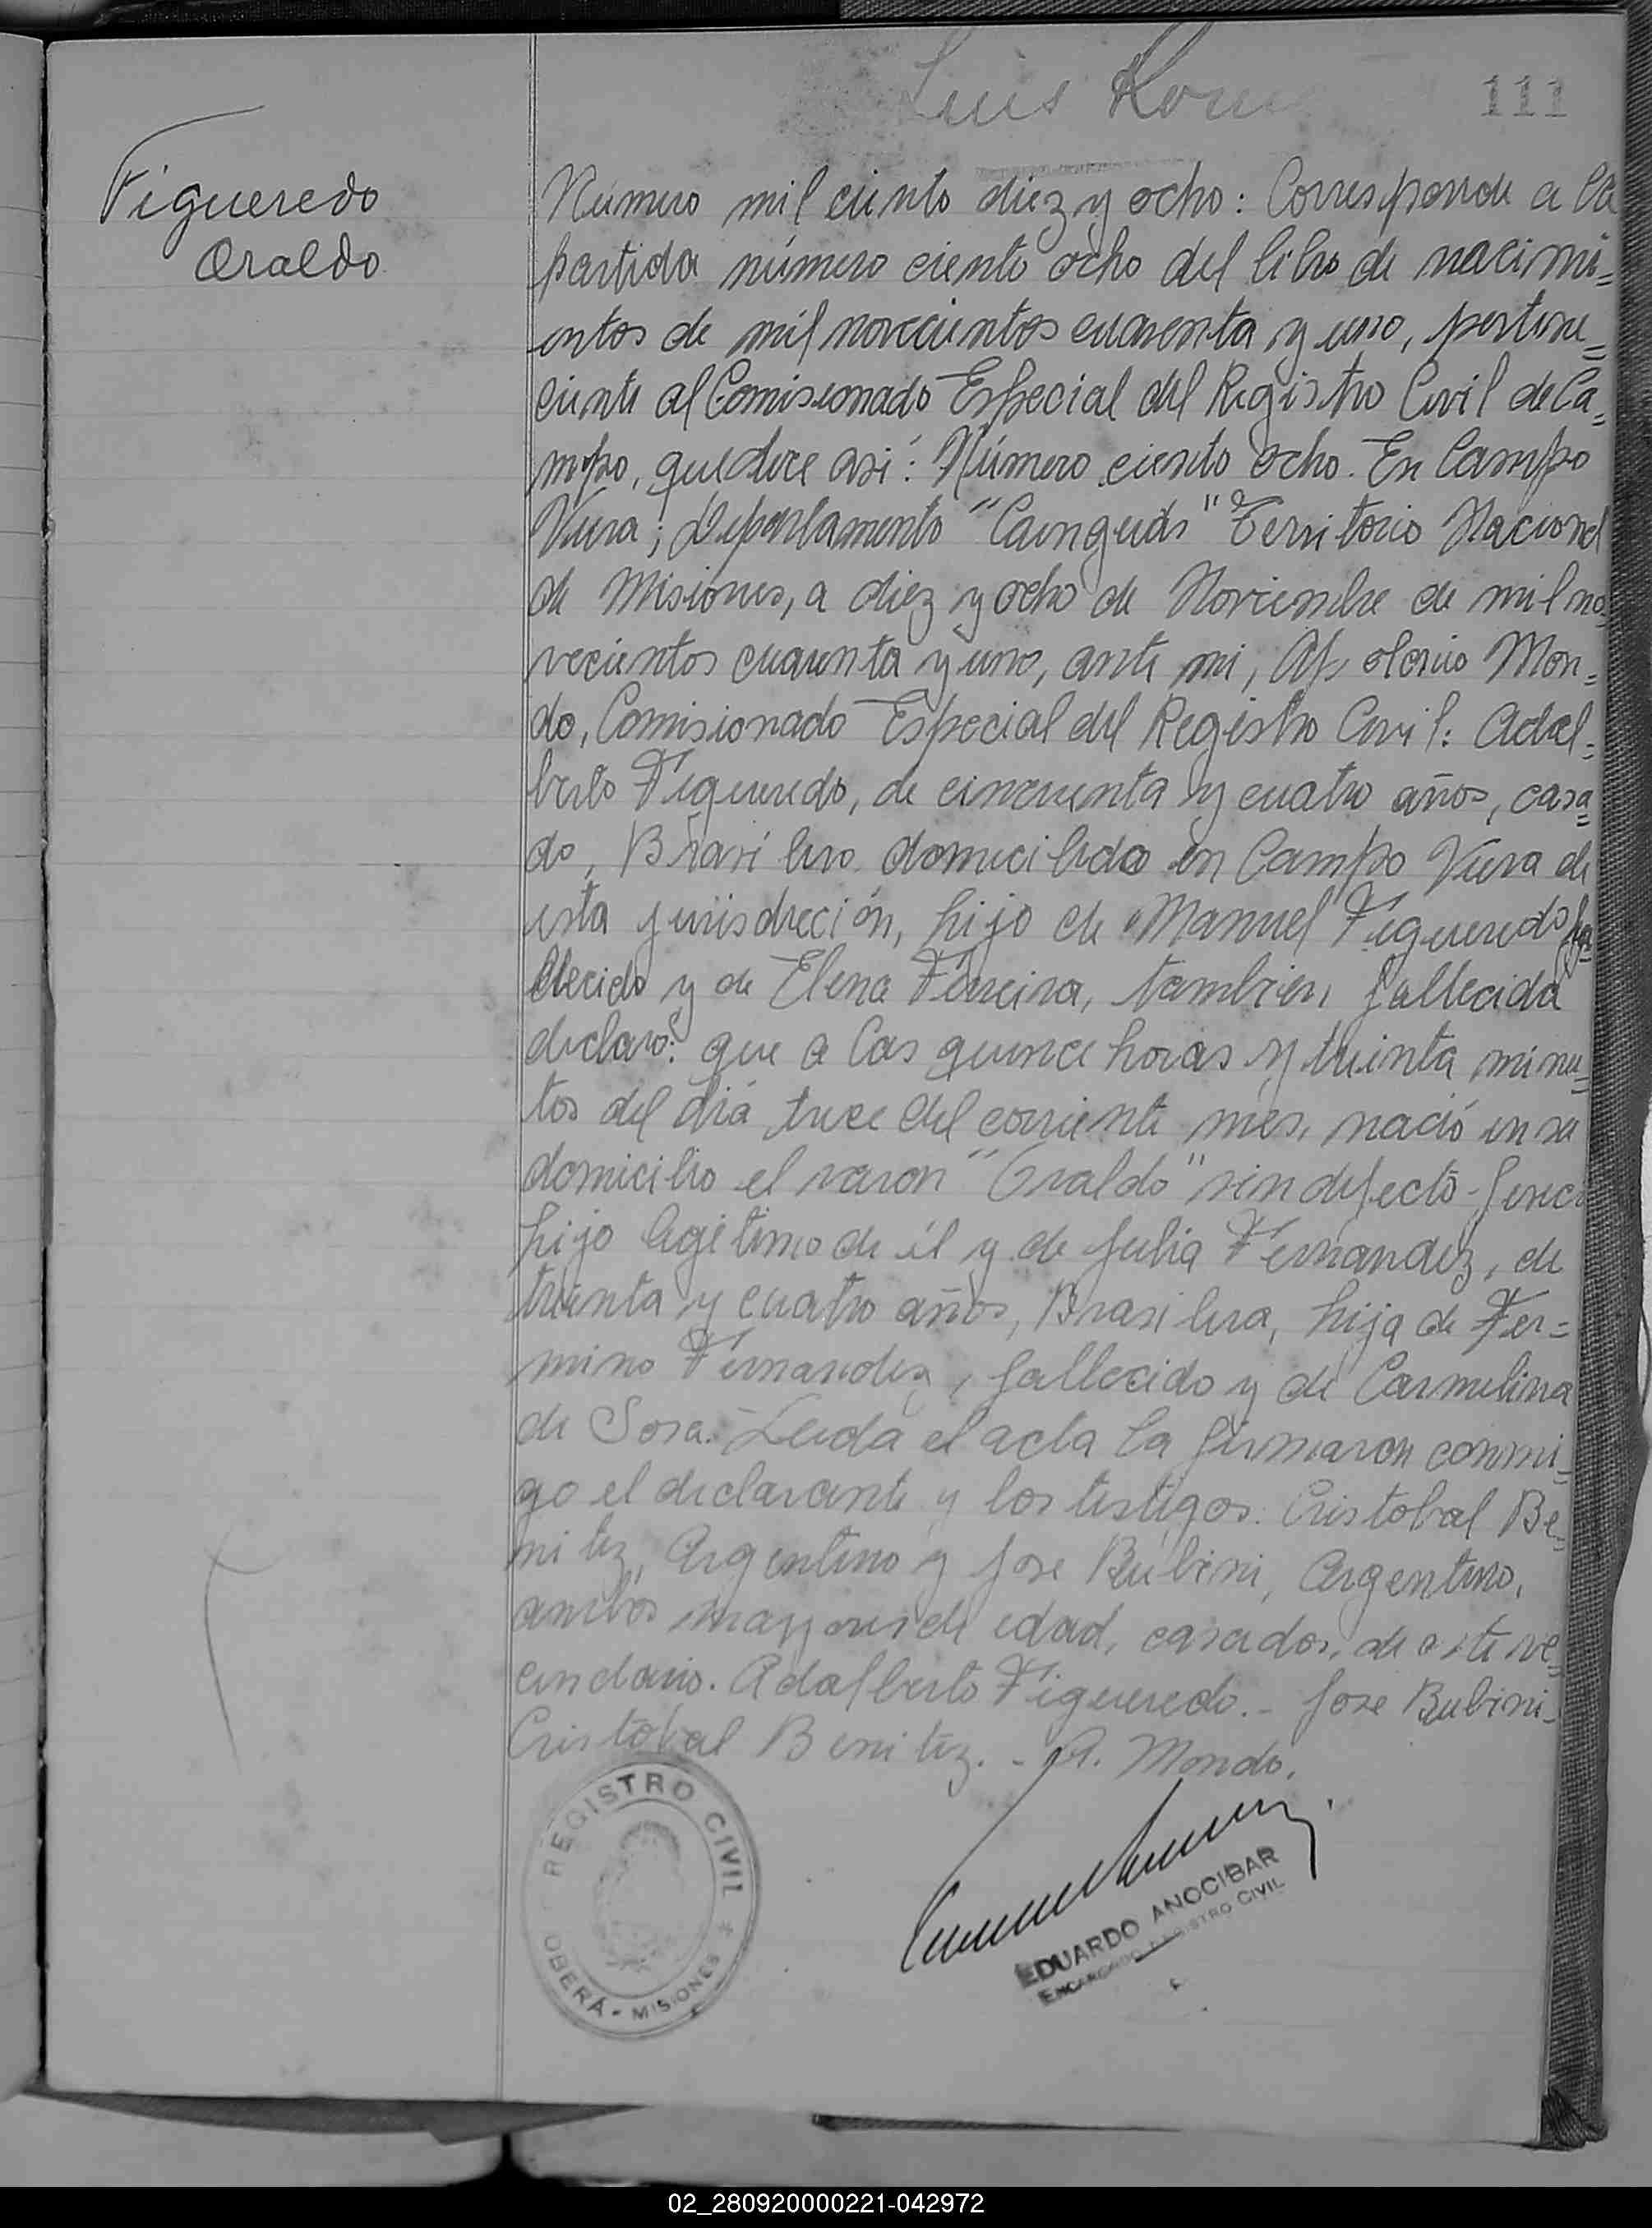 Luis
111
Figueredo
Oraldo
Número mil ciento diez y ocho: Corresponde a la
partida número ciento ocho del libro de nacimi=
entos de mil novecientos cuarenta y uno, pertene=
ciente al Comisionado Especial del Registro Civil de Ca=
mpo, que dice asi: Número ciento ocho. En Campo
Viera; Departamento "Cainguás" Territorio Nacional
de Misiones, a diez y ocho de Noviembre de mil no
vecientos cuarenta y uno, ante mi, Ap olonio Mon=
do, Comisionado Especial del Registro Civil: Adal=
berto Figueredo, de cincuenta y cuatro años, casa=
do, Brasilero domiciliado en Campo Viera de
esta jurisdicción, hijo de Manuel Figueredo fa
llecido y de Elena Ferreira, tambien fallecida
declaro: que a las quince horas y treinta minu=
tos del día trece del corriente mes, nació en su
domicilio el varon "Oraldo" sin defecto fisico
hijo legitimo de él y de Julia Fernandez, de
treinta y cuatro años, Brasilera, hija de Fer=
mino Fernandez, fallecido y de Carmelina
de Sosa.- Leida el acta la firmaron conmi=
go el declarante y los testigos. Cristobal Be=
nitez, Argentino y Jose Bubini, Argentino,
ambos mayores de edad, casados, de este ve=
cindario. Adalberto Figueredo.- Jose Bubini-
Cristobal Benitez.- A. Mondo.
REGISTRO CIVIL
OBERÁ - MISIONES
EDUARDO ANOCIBAR
ENCARGADO REGISTRO CIVIL
02_280920000221-042972